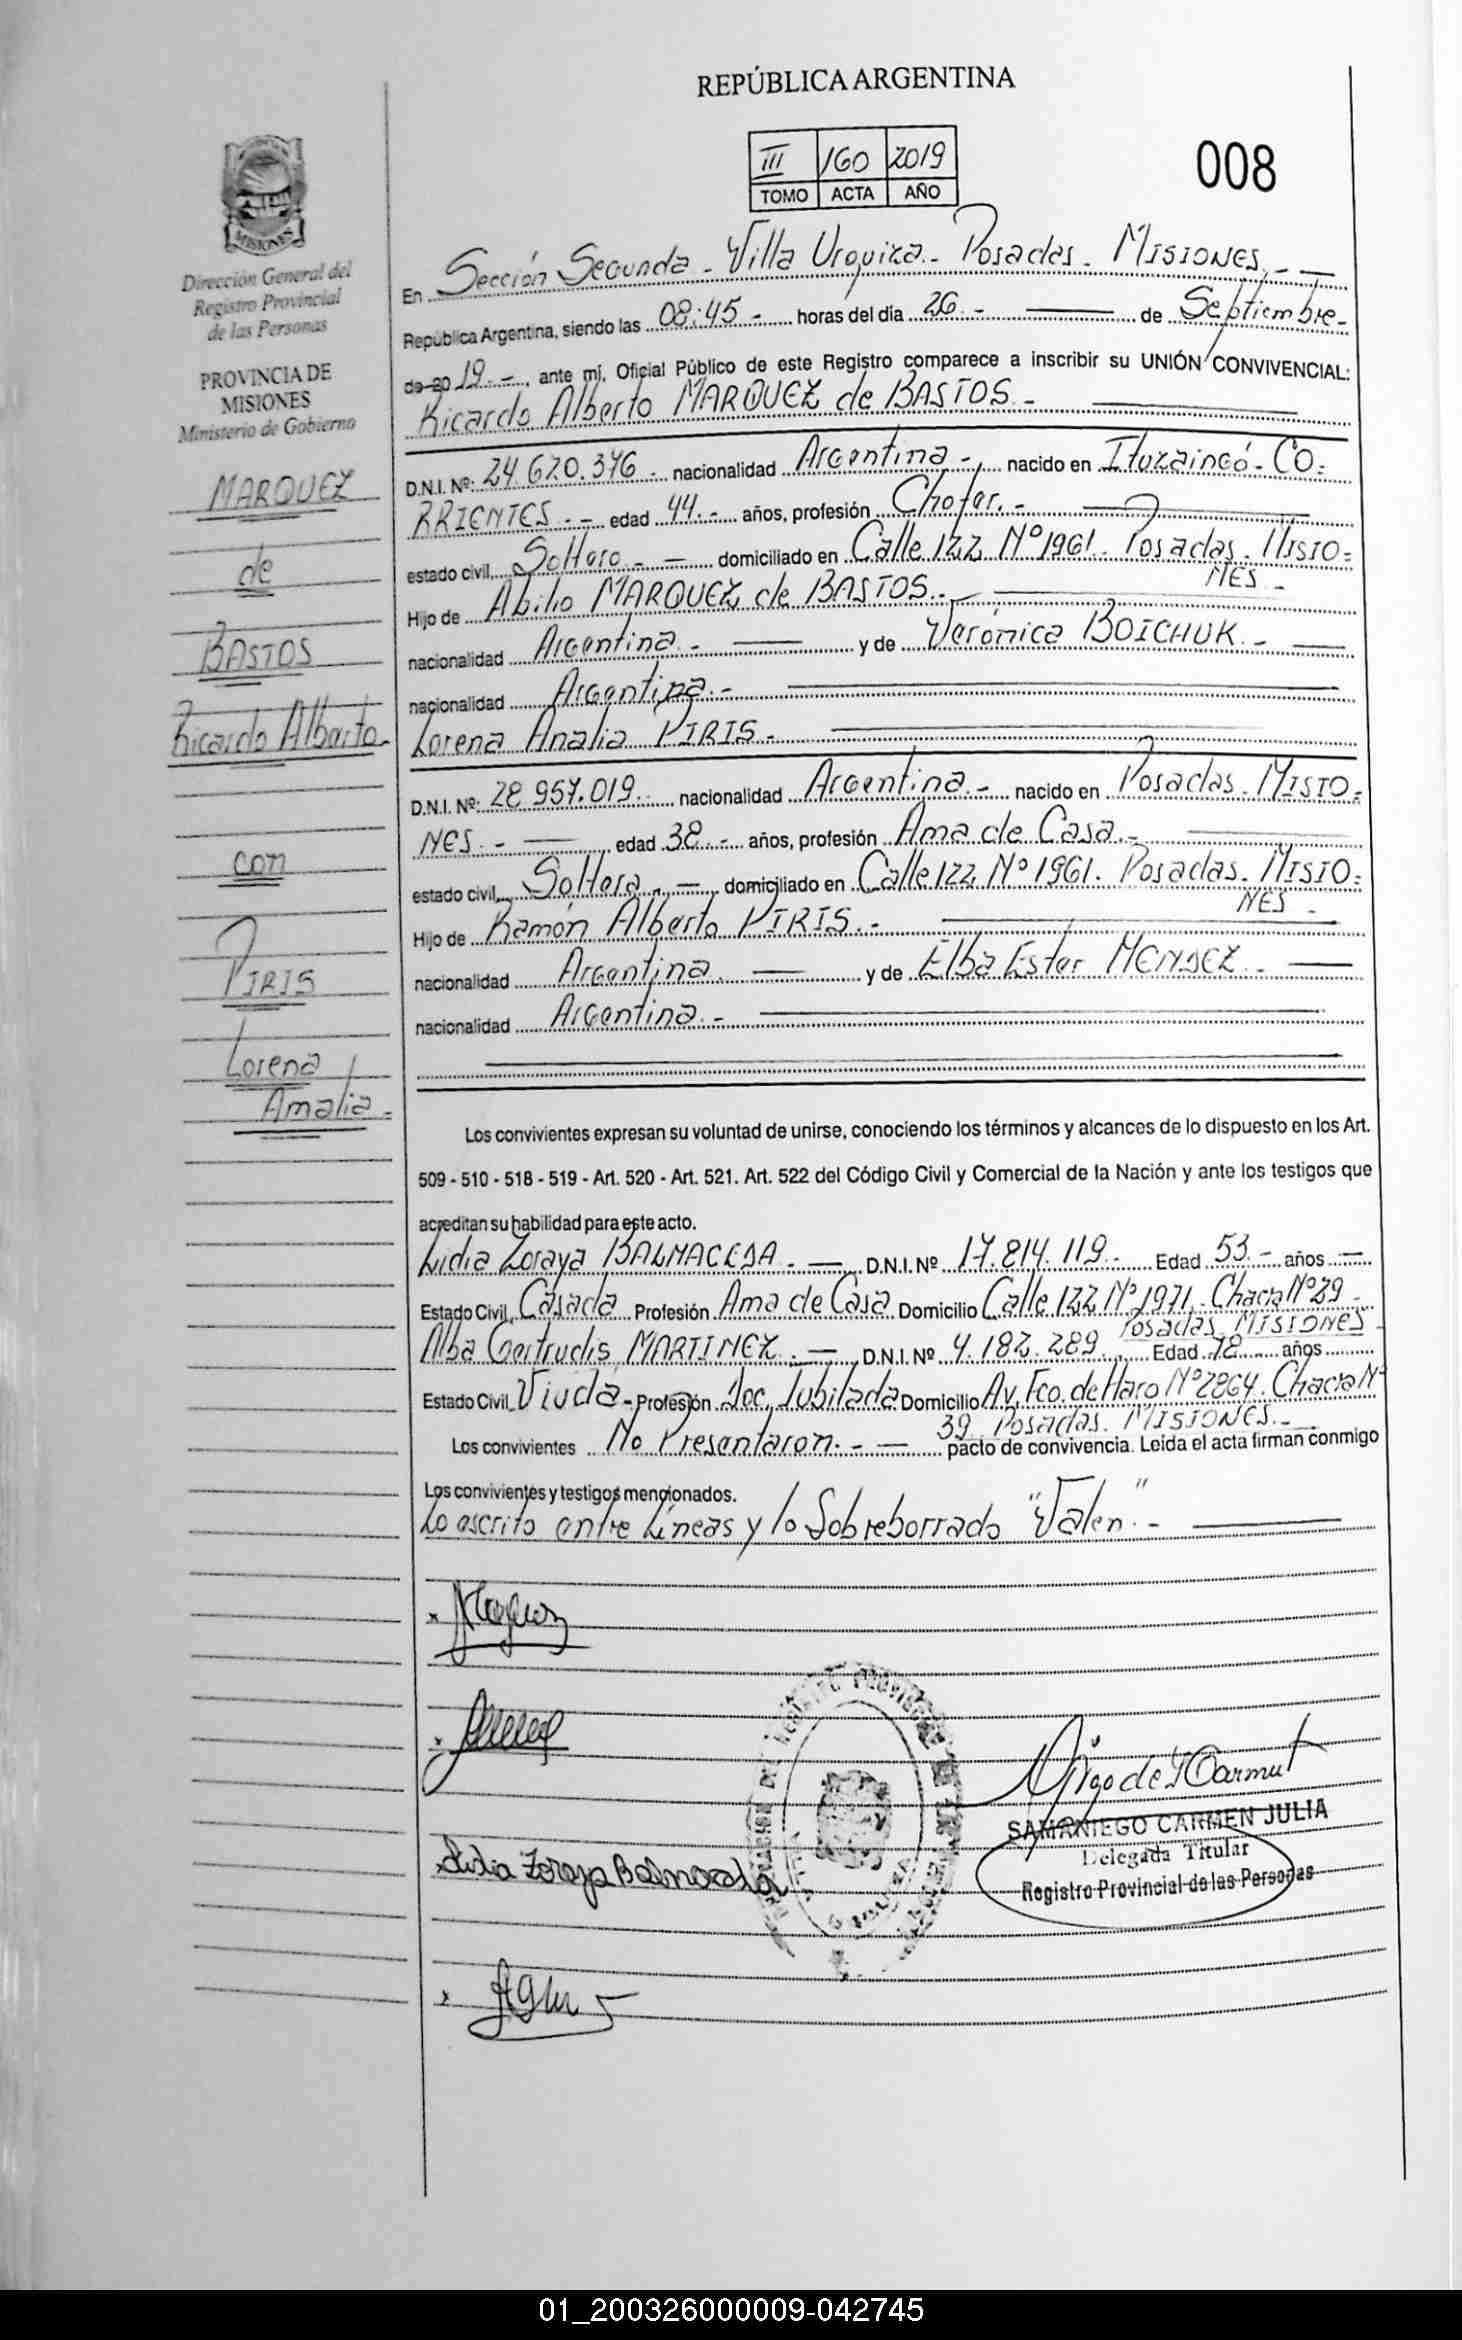 REPÚBLICA ARGENTINA
III 160 2019
TOMO ACTA AÑO
008
MISIONES
Dirección General del
Registro Provincial
de las Personas
PROVINCIA DE
MISIONES
Ministerio de Gobierno
MARQUEZ
de
BASTOS
Ricardo Alberto
con
PIRIS
Lorena
Amalia.-
En Sección Segunda - Villa Urquiza - Posadas - MISIONES, -
República Argentina, siendo las 08:45 - horas del día 26. - de Septiembre-
de 20 19. -, ante mí, Oficial Público de este Registro comparece a inscribir su UNIÓN CONVIVENCIAL:
Ricardo Alberto MARQUEZ de BASTOS. -
D.N.I. Nº: 24.620.376 - nacionalidad Argentina -, nacido en Ituzaingó - CO-
RRIENTES. - edad 44. - años, profesión Chofer. -
estado civil, Soltero. - domiciliado en Calle 122 Nº 1961. Posadas. MISIO-
NES -
Hijo de Abilio MARQUEZ de BASTOS. -
nacionalidad Argentina. - y de Verónica BOICHUK. -
nacionalidad Argentina. -
Lorena Analia PIRIS. -
D.N.I. Nº: 28.957.019. nacionalidad Argentina. - nacido en Posadas. MISIO-
NES. - edad 38. - años, profesión Ama de Casa. -
estado civil, Soltera. - domiciliado en Calle 122 Nº 1961. Posadas. MISIO-
NES -
Hijo de Ramón Alberto PIRIS. -
nacionalidad Argentina. - y de Elba Ester MENDEZ. -
nacionalidad Argentina. -
Los convivientes expresan su voluntad de unirse, conociendo los términos y alcances de lo dispuesto en los Art.
509 - 510 - 518 - 519 - Art. 520 - Art. 521. Art. 522 del Código Civil y Comercial de la Nación y ante los testigos que
acreditan su habilidad para este acto.
Lidia Zoraya BALMACEDA. - D.N.I. Nº 17.814.119. Edad 53. - años -
Estado Civil, Casada Profesión Ama de Casa Domicilio Calle 122 Nº 1971. Chacra Nº 39 -
Posadas. MISIONES -
Alba Gertrudis MARTINEZ. - , D.N.I. Nº 4.182.289. Edad 78 años
Estado Civil, Viuda - Profesión Doc. Jubilada Domicilio Av. Fco. de Haro Nº 2864. Chacra Nº
39. Posadas. MISIONES. -
Los convivientes No Presentaron. - - pacto de convivencia. Leída el acta firman conmigo
Los convivientes y testigos mencionados.
Lo escrito entre Líneas y lo Sobreborrado "Valen" -
Lidia Zoraya Balmaceda
SAMANIEGO CARMEN JULIA
Delegada Titular
Registro Provincial de las Personas
01_200326000009-042745